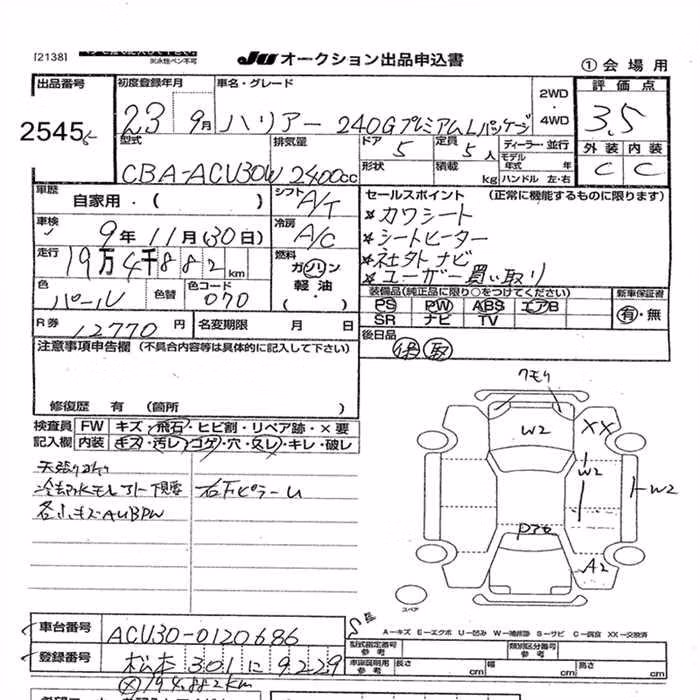 [2138]
※水性ペン不可
JU オークション出品申込書
①会場用
出品番号
2545
初度登録年月
23 9月
車名・グレード
ハリアー 240GプレミアムLパッケージ
2WD・4WD
評価点
3.5
外装 内装
C C
型式
CBA-ACU30W
排気量
2400cc
ドア 5
形状
定員 5人
積載 kg
ディーラー・並行
モデル年式 年
ハンドル 左・右
車歴
自家用・( )
シフト
A/T
車検
9年11月(30日)
冷房
A/C
走行
19万4千882km
燃料
ガソリン
軽油・
( ・ )
色
パール
色替
色コード
070
セールスポイント (正常に機能するものに限ります)
★カワシート
★シートヒーター
★社外ナビ
★ユーザー買い取り
装備品(純正品に限り○をつけてください)
PS PW ABS エアB
SR ナビ TV
新車保証書
有・無
R券
12770円
名変期限 月 日
後日品
保 取
注意事項申告欄 (不具合内容等は具体的に記入して下さい)
修復歴 有 (箇所 )
検査員記入欄
FW キズ・飛石・ヒビ割・リペア跡・×要
内装 キズ・汚レ・コゲ・穴・スレ・キレ・破レ
冷却水モレ
各小キズAUBPW
右下ピラーU
クモリ
W2
XX
W2
W2
A2
スペア
A-キズ E-エクボ U-凹み W-補修跡 S-サビ C-腐食 XX-交換済
車台番号
ACU30-0120686
登録番号
松本 301 に 9229
194882km
型式指定番号 参考
類別区分番号 参考
車庫証明用 参考
長さ cm
幅 cm
高さ cm